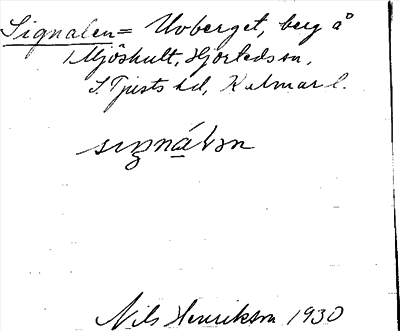 Signalen = Uvberget, berg å
Mjöshult, Hjorteds sn,
S Tjusts hd, Kalmar l.
Nils Henrikson 1930